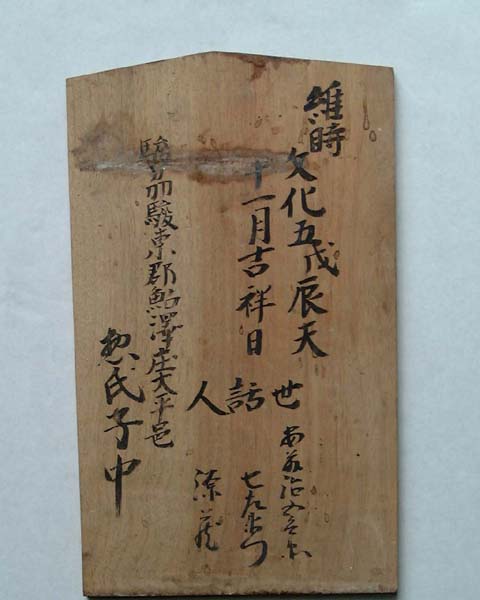 維時
文化五戊辰天
十一月吉祥日
世話人
七左衛門
駿州駿東郡鮎澤庄大平邑
惣氏子中